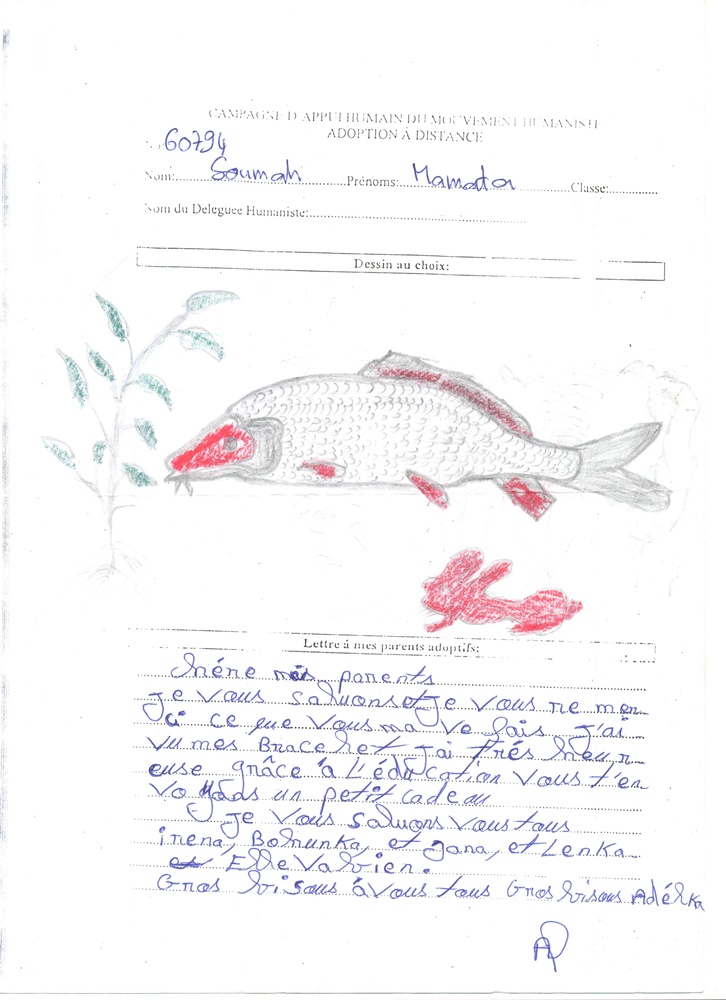 CAMPAGNE D'APPUI HUMAIN DU MOUVEMENT HUMANISTE
ADOPTION À DISTANCE
60794
Nom: Soumah Prénoms: Mamata Classe:
Nom du Deleguee Humaniste:
Dessin au choix:
Lettre á mes parents adoptifs:
mes parents
Je vous saluons et je vous re men
Ci ce que vous ma ve fais j'ai
vu mes Bracelet j'ai trés heur
euse grâce à L'éducation vous t'en
un petit cadeau
Je vous saluons vous tous
irena, Bohunka, et Jana, et Lenka
et Elle va bien.
Gros bisous à vous tous Gros bisous Adélka